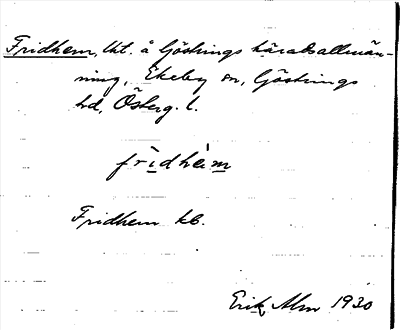 Fridhem, lht. å Göstrings häradsallmän-
ning, Ekeby sn, Göstrings
hd, Österg. l.
frìdhèm
Fridhem kb.
Erik Alm 1930